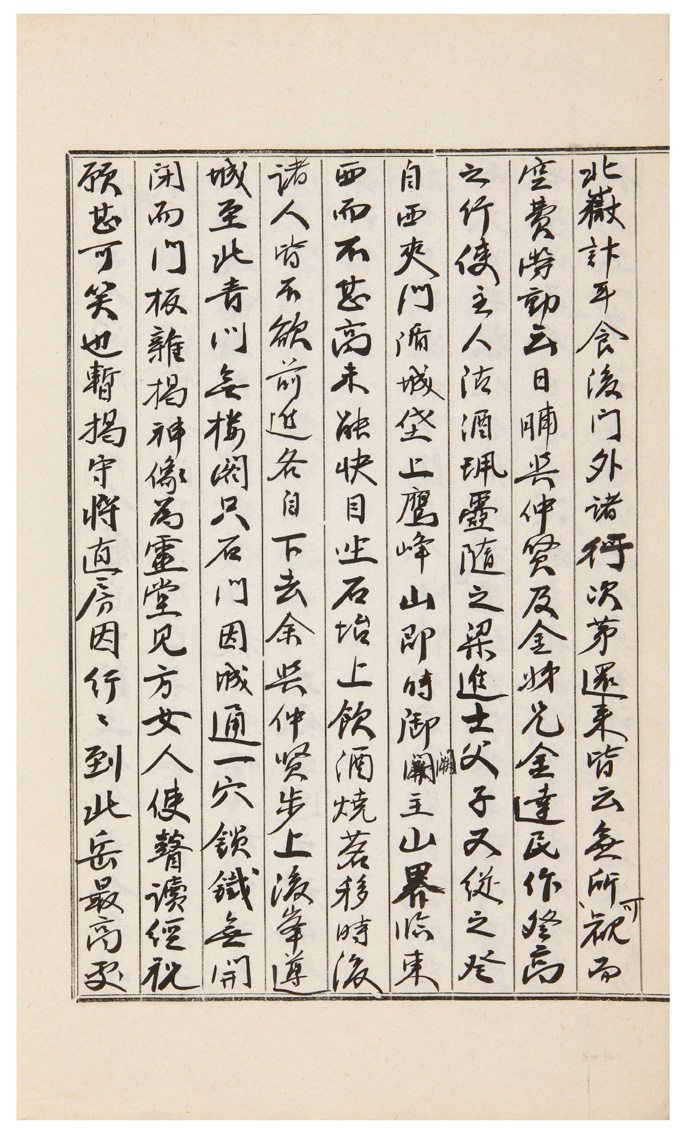 北嶽計耳食後門外諸行次第還來皆云無所可觀而
空費勞動云日晡與仲賢及金姊兄金達民作登高
之行使主人沽酒珮靈隨之梁進士父子又從之登
自西夾門循城垡上鷹峰山即時御闕主山界臨東
西而不甚高未能快目坐石坮上飲酒燒茗移時後
諸人皆不欲前進各自下去余與仲賢步上後峯遵
城至北青門無樓閣只石門因城通一穴鎖鐵無開
閉而門板雜揭神像為靈堂見方女人使瞽讀經祝
願甚可笑也暫揭守將直房因行〻到北岳最高處